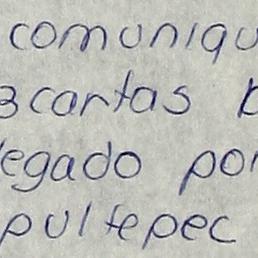 comuniqu
3 cartas
legado por
pultepec